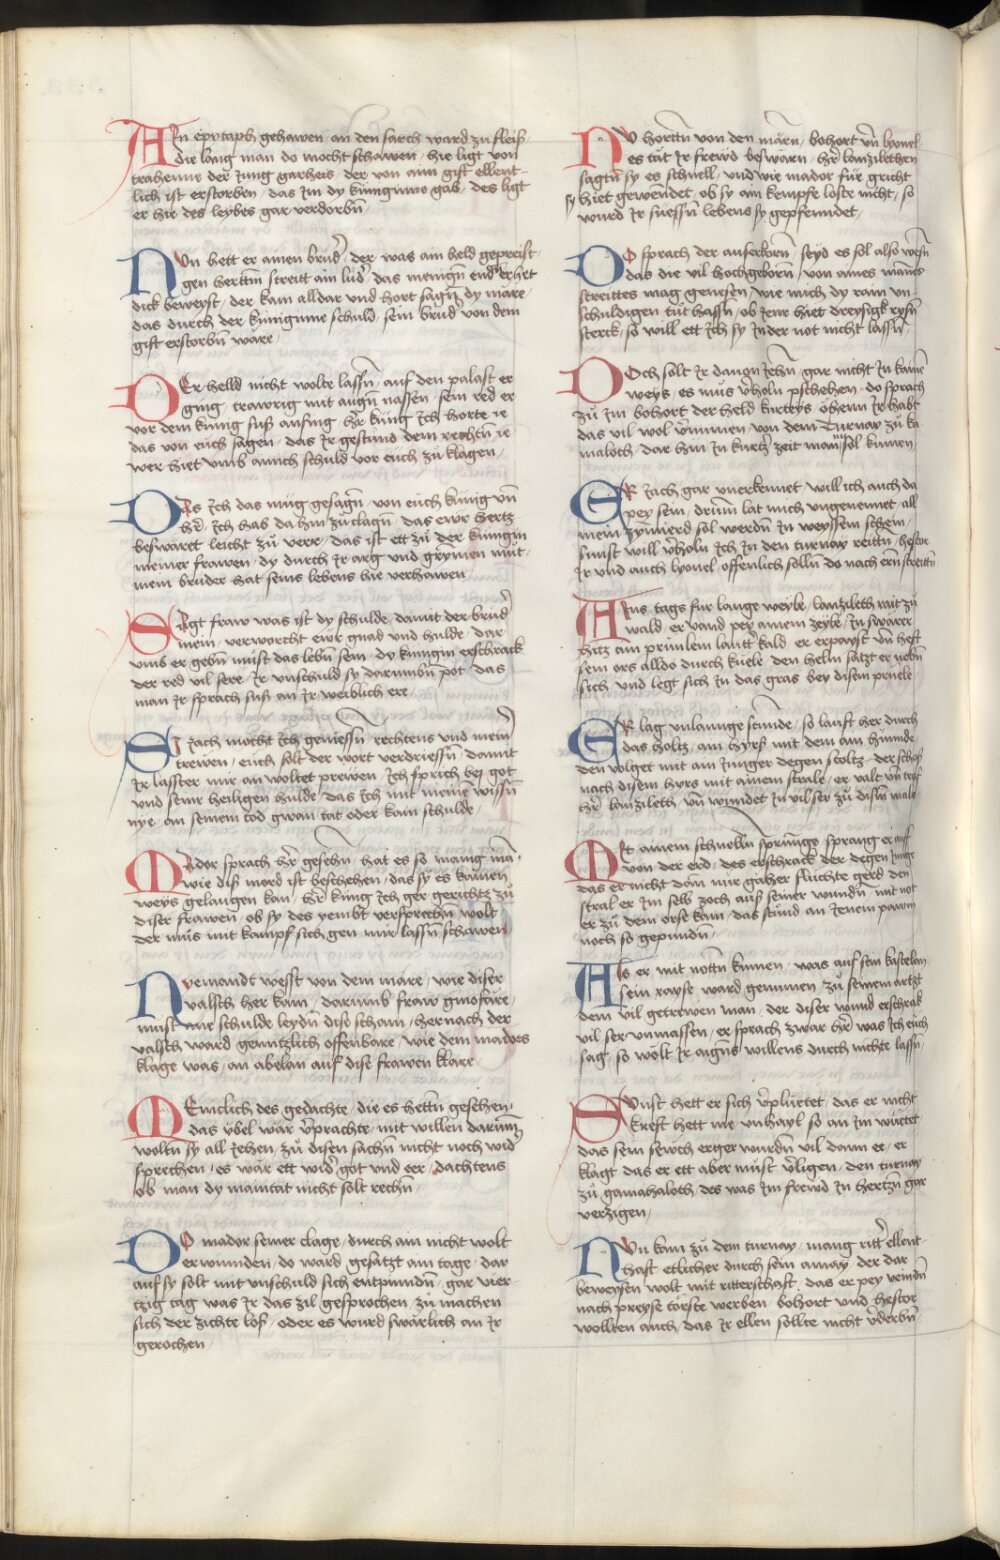 An epytaph gehawen an den sarch ward zu fleiss
die lang man do mocht schawen / hie ligt von
trahenne der jung garheis / der von ainn gift ellent-
lich ist erstorben / das im dy künginne gab / des ligt
er hie des leybes gar verdorbn̄ /
Nun hett er ainen brud̾ / der was ain held gepreist
gen herttm streitt ain lud̾ / das menign end er het
dick beweyst / der kam alldar vnd hort sagn̄ dy märe /
das durch der künginne schuld / sein brud von dem
gift erstorbn̄ wäre /
Der helld nicht wolte lassn̄ / auf den palast er
ging / trawrig mit augn̄ nassen / sein red er
vor dem künig suss anfing / her̾ küng ich horte ie
das von euch sagen / das ir gestünd dem rechtn̄ ie
wer hiet vmb ainich schuld vor euch zů klagen /
Das ich das müg gesagn̄ / von euch künig vn̄
her̾ / ich hab da hin zů clagn̄ / das ewr hertz
beswäret leicht zů verr / das ist ett zů der künigin
meiner frawen / dy durch ir arg vnd grymen můt /
mein bruder hat seins lebens hie verhawen /
Sagt fraw was ist dy schulde / damit der brud̾
mein / verworcht ewr gnad vnd hulde / dar
vmb er gebn̄ müst das lebn̄ sein / dy künigin erschrack
der red vil sere / ir vnschuld sy darumbn̄ pot / das
man ir sprach suss an ir weiblich ere /
Si jach mocht ich geniessn̄ rechtens vnd mein̾
trewen / euch solt der wort verdriessn̄ / damit
ir lasster mir an woltet prewen / ich sprich bej got
vnd seinr heiligen hulde / das ich mit meinē wissn̄
nye / an seinem tod gwan tat oder kain schulde /
Mador sprach her̾ gesehn̄ / hat es so manig mā /
wie diss mord ist beschehen / das sy es kainen
weys gelaugen kan / her̾ küng ich ger gerichtz zů
diser frawen / ob sy des yembt versprechn̄ wolt
der můs mit kampf sich gen mir lassn̄ schawen
Nyemandt wesst von dem märe / wie diser
valsch her kam / darumb fraw ginofure /
müst ane schulde leydn̄ dise scham / hernach der
valsch ward gäntzlich offenbäre / wie dem madors
klage was / an abelan auf dise frawen kläre
Meinclich des gedachte / die es hettn̄ gesehen /
das übel wär v̾prachte / mit willen darum̄
woltn̄ sy all jehen / zů disen sachn̄ nicht noch wid̾
sprechen / es wär ett wid̾ got vnd eer / dachtens
ob man dy maintat nicht solt rechn̄ /
Do mador seiner clage / durch ain nicht wolt
erwinnden / do ward gesatzt am tage / dar
auf sy solt mit vnschuld sich entpinndn̄ / gar vier-
tzig tag was ir das zil gesprochen / zů machen
sich der zichte los / oder es wurd swärlich an ir
gerochen /
Do hortn̄ von den märn̄ / bohort vn̄ lyonel
es tät ir frewd beswärn / her̾ lanzilethen
sagtn̄ sy es schnell / vnd wie mador für gricht
sy hiet gewendet / ob sy am kempfe loste nicht / so
wurd ir suessn̄ lebens sy gepfenndet /
Do sprach der auserkorn̄ / seyd es sol also wesn̄
das die vil hochgeborn̄ / von aines mānns
streittes mag genesen / wie mich dy rain vn
schuldigen tüt hassn̄ / ob jenr hiet dreysigk rysn̄
sterck / so will ett ich sy in der not nicht lassn̄ /
Doch sölt ir daugn̄ jehn̄ / gar nicht in kainē
weys / es můs v̾holn̄ pschehen / do sprach
zů im bohort der held kurteys / ohem ir habt
das vil wol v̾nummen / von dem turnay zů ka
maloth / dar hin in kurtz̾ zeit man sol kumen
Er jach gar vnerkennet will ich auch da
pey sein / drum lat mich vngenennet / all
mein zymierd sol werdn̄ in weyssem schein /
sunst will v̾holn̄ ich in den turnay reittn̄ / hestor
ir vnd auch lyonel offenlich sölln̄ do nach ern̄ streittn̄
Ains tags für lange weyle / lanzileth rait zů
wald / er vand pey ainem zeyle / in swärer
hitz ain prünlem lautt̾ kald / er erpayst vn̄ hefft
sein ors alldo durch küele / den helm satzt er nebn̄
sich / vnd legt sich in das gras bey disem prüele
Er lag vnlannge stunde / so laufft her durch
das holtz / ain hyrss mit dem ain hunnde /
den volget mit ain junger degen stoltz / der schoss
nach disem hirs mit ainem strale / er vält vn̄ traf
her̾ lanzileth / vn̄ wundet in vil ser zů disn̄ male
Mit ainem schnelln̄ sprunnge / sprang er auff
von der erd / des erschrack der degen junge
das er nicht dann nur gäher fluchte gerd / den
stral er im selb zoch auss seiner wundn̄ / mit not
er zů dem orse kam / das stůnd an jenem pawm
noch so gepundn̄ /
Als er mit nöttn̄ kumen / was auf sein kastelan
sein rayse ward genumen / zů seinem artzt
dem vil getrewen man / der diser wund erschrak
vil ser vnmassen / er sprach zwar her̾ was ich euch
sag / so wolt ir aigns willens durch nichte lassn̄ /
Sunst hett er sich v̾pluetet / das er nicht
krefft hett nie vnhayl so an im wüetet
das sein sewch erger wurdn̄ vil dann ee / er
klagt das er ett aber müst v̾ligen / den turnay
zů gamahaloth / des was im frewd in hertzn̄ gar
verzigen /
Nun kam zů dem turnay / manig ritt̾ ellent-
haft / etlicher durch sein amay / der dar
beweysen wolt mit ritterschaft / das er pey veindn̄
nach preyse törste werben / bohort vnd hestor
wollten auch / das ir ellen sollte nicht v̾derbn̄